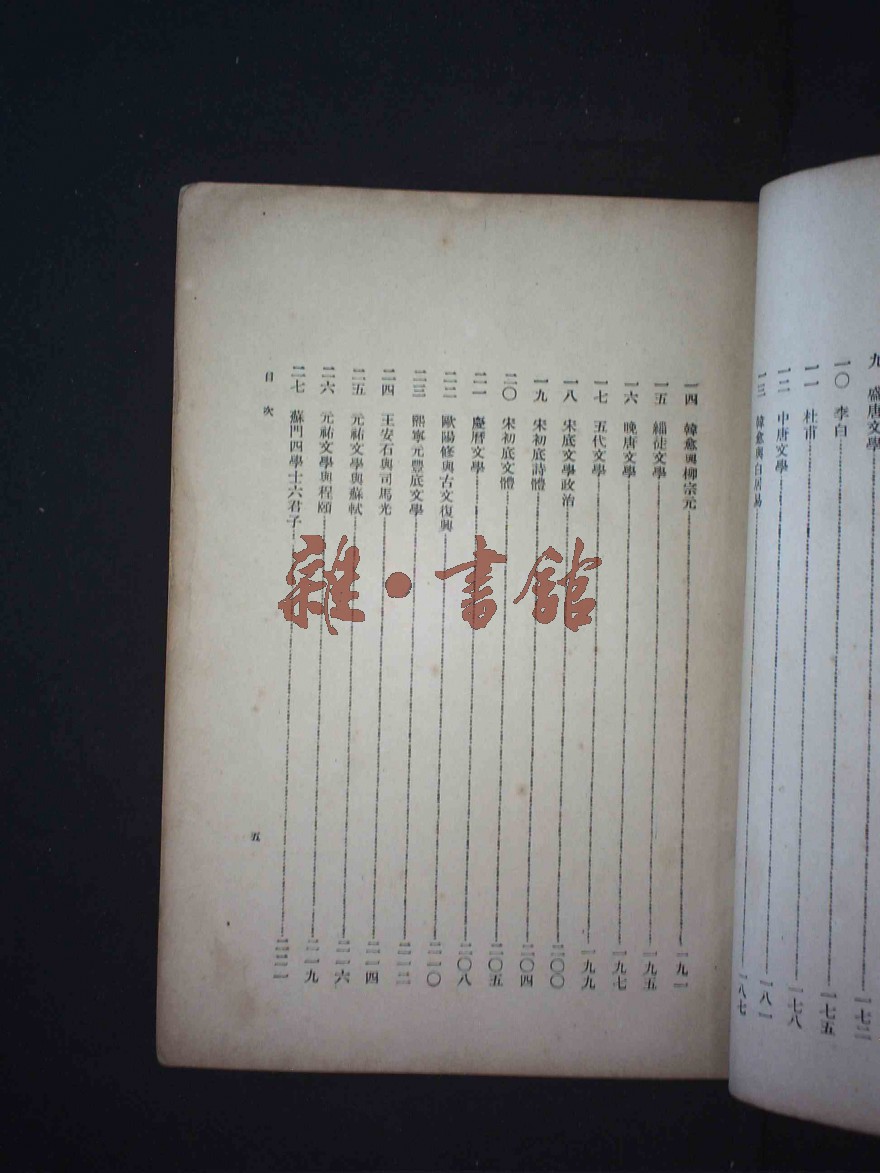 九 盛唐文學 一七二
一〇 李白 一七五
一一 杜甫 一七八
一二 中唐文學 一八一
一三 韓愈與白居易 一八七
一四 韓愈與柳宗元 一九一
一五 緇徒文學 一九五
一六 晚唐文學 一九七
一七 五代文學 一九九
一八 宋底文學政治 二〇〇
一九 宋初底詩體 二〇四
二〇 宋初底文體 二〇五
二一 慶曆文學 二〇八
二二 歐陽修與古文復興 二一〇
二三 熙寧元豐底文學 二一二
二四 王安石與司馬光 二一四
二五 元祐文學與蘇軾 二一六
二六 元祐文學與程頤 二一九
二七 蘇門四學士六君子 二二一
目次
五
雜·書館